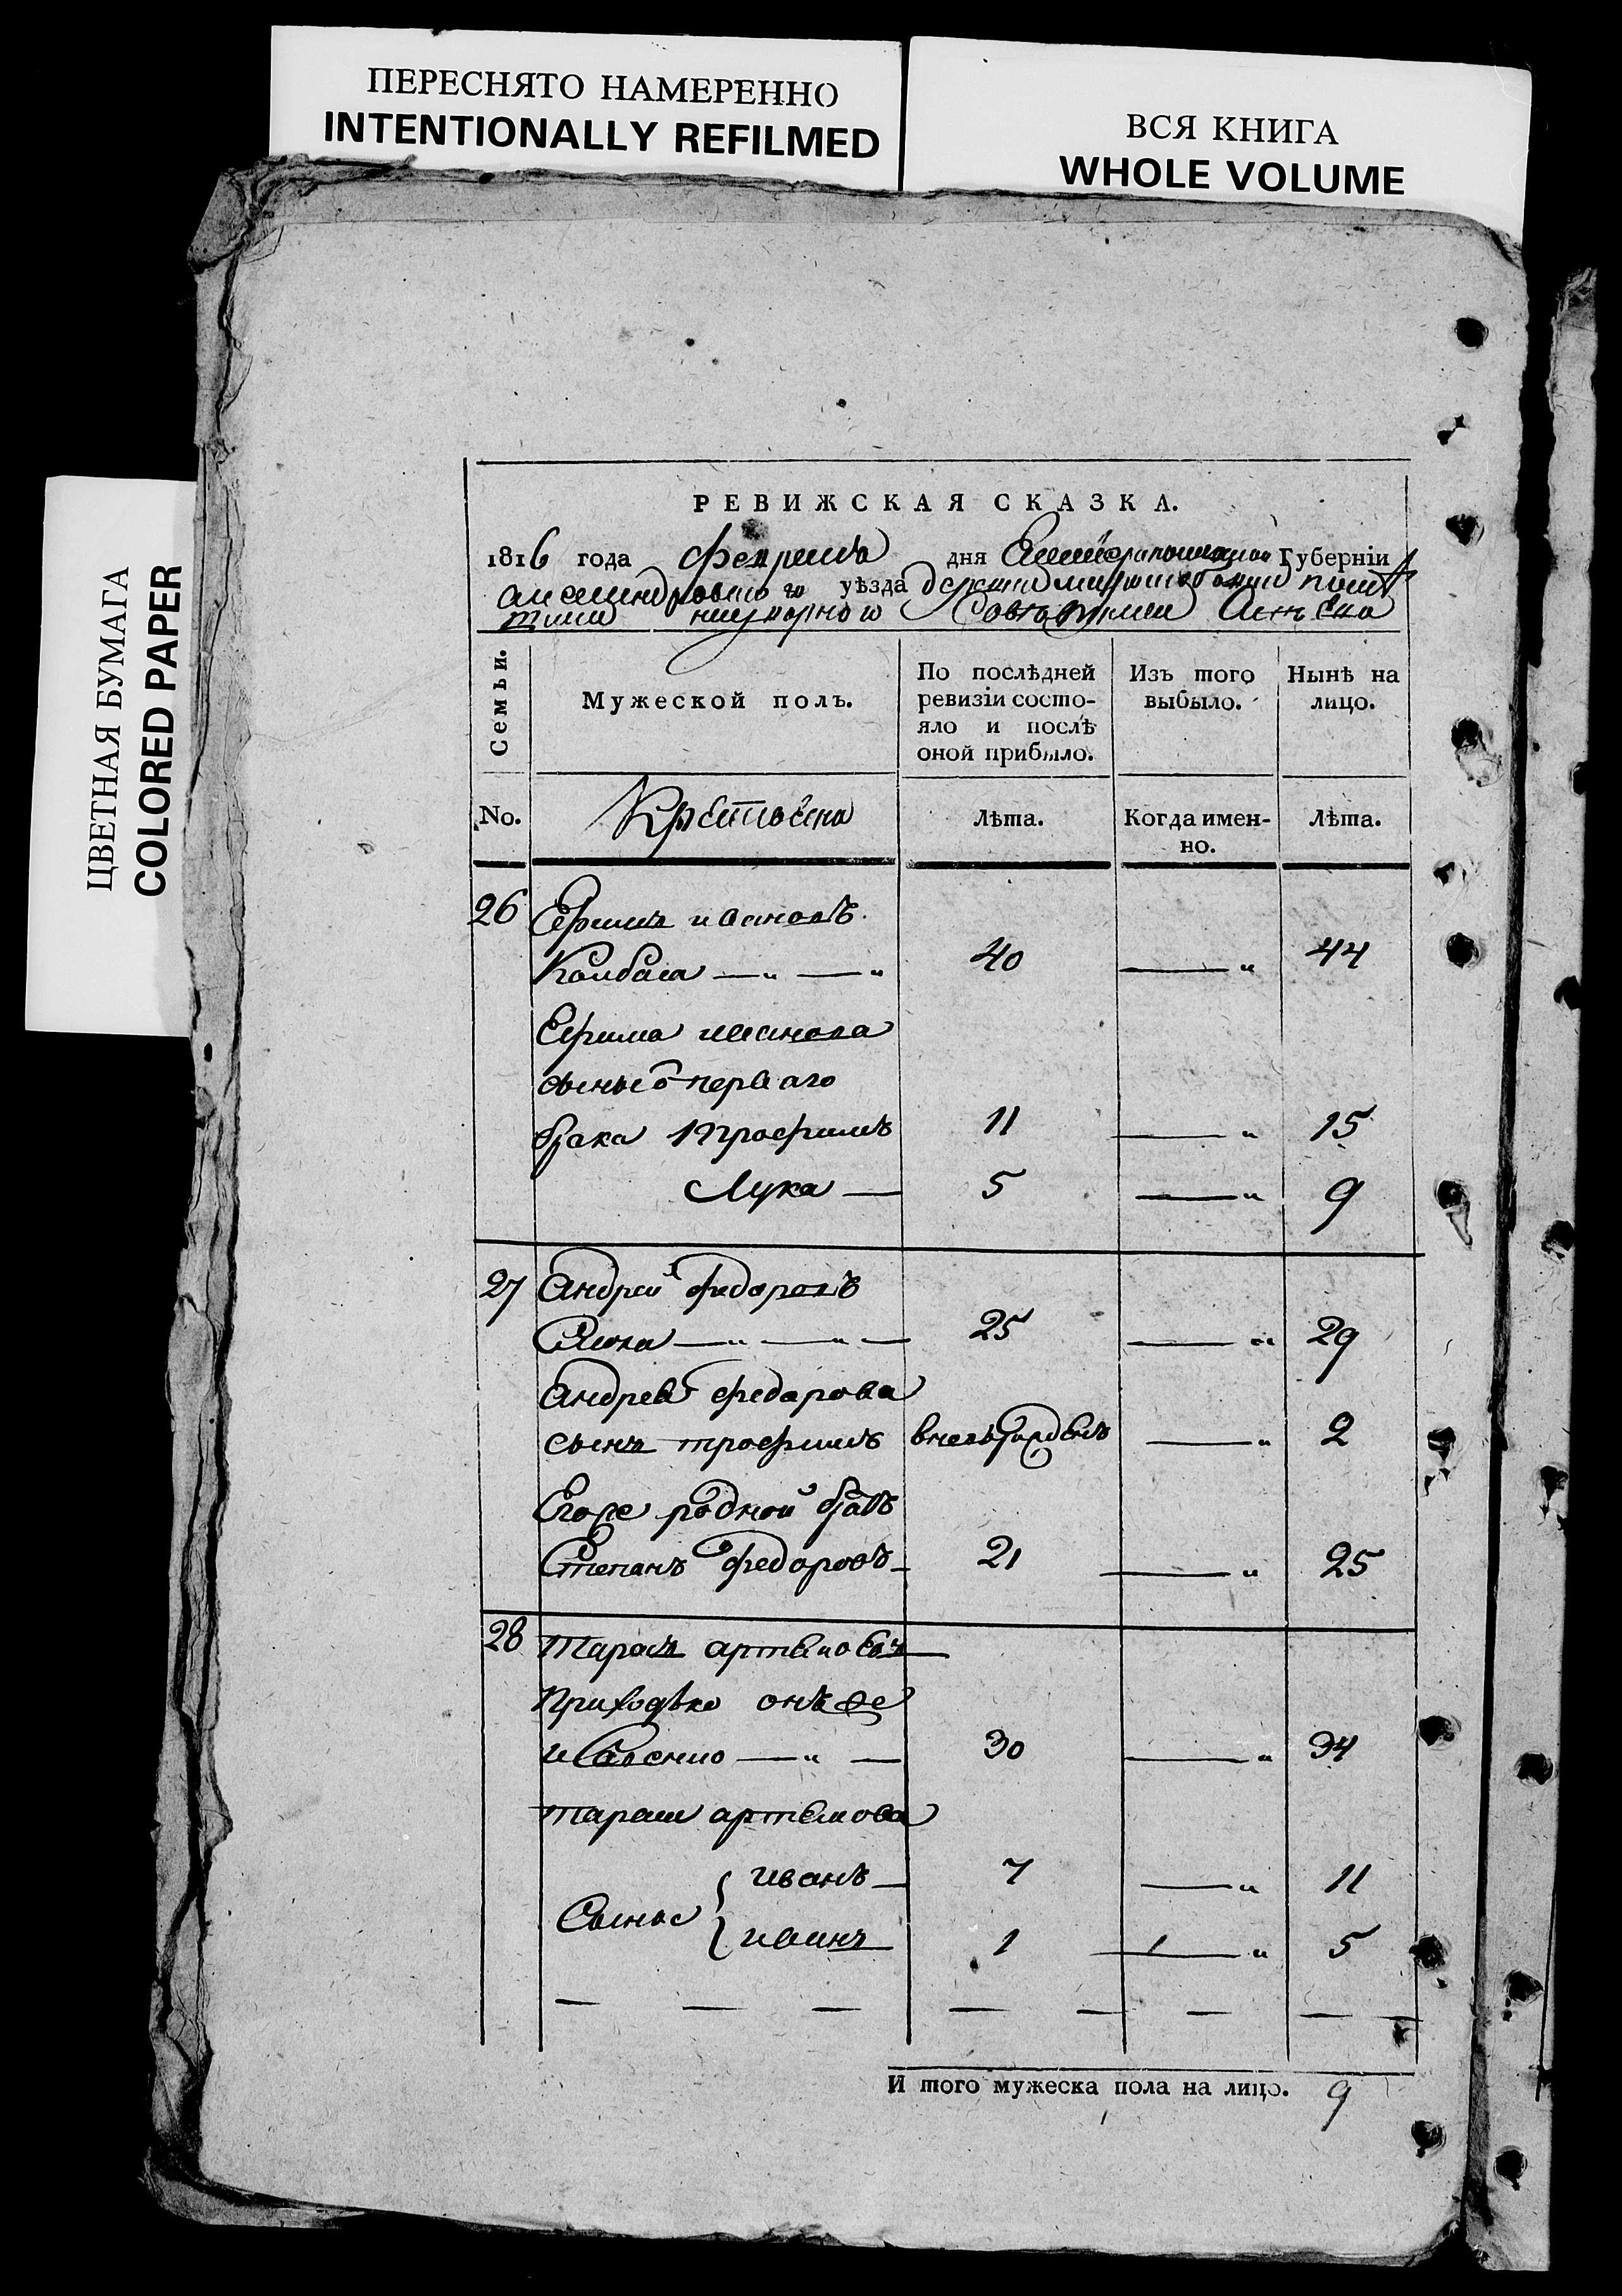 ПЕРЕСНЯТО НАМЕРЕННО
INTENTIONALLY REFILMED
ВСЯ КНИГА
WHOLE VOLUME
ЦВЕТНАЯ БУМАГА
COLORED PAPER
РЕВИЖСКАЯ СКАЗКА.
1816 года февраля дня Екатеринославской Губерніи
александровского уѣзда деревни
надворного Советника
Семьи.
Мужеской полъ.
По послѣдней
ревизіи состо-
яло и послѣ
оной прибыло.
Изъ того
выбыло.
Нынѣ на
лицо.
No.
Крестьяна
лѣта.
Когда имен-
но.
лѣта.
26 Ефимъ ивановъ
Колбаса — „ — „ 40 — „ 44
Ефима иванова
сыны о первого
брака 1 Трофимъ 11 — „ 15
Лука — 5 — „ 9
27 Андрей федоровъ
— „ — „ — 25 — „ 29
Андрея федорова
сынъ трофимъ — „ 2
Егоже родной братъ
Степанъ федоровъ — 21 — „ 25
28 тарасъ артемовъ —
Приходко онъ же
— „ — 30 — „ 34
тараса артемова
Сыны { иванъ — 7 — „ 11
иванъ 1 — „ 5
— — — — — — — —
И того мужеска пола на лицо. 9